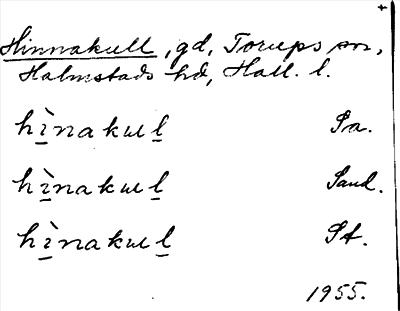 +
Hinnakull, gd, Torups sn,
Halmstads hd, Hall. l.
hì̠nakul̠ Sa.
hì̠nakul̠ Sand.
hì̠nakul̠ St.
1955.